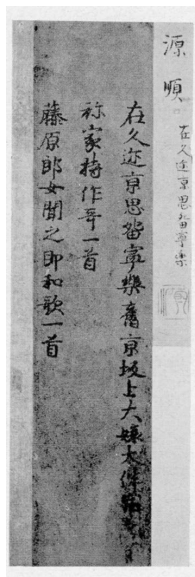 源順
在久迩京思留寧樂
在久迩京思留寧樂舊京坂上大嬢大伴宿
祢家持作哥一首
藤原郎女聞之即和歌一首